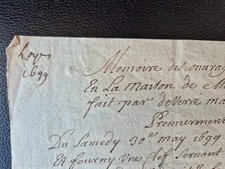 1699
Memoire des ouvrag
En La maison de M
fait par deVerre ma
Premierement
Du Samedy 30e may 1699
Et fourny Une clef servant